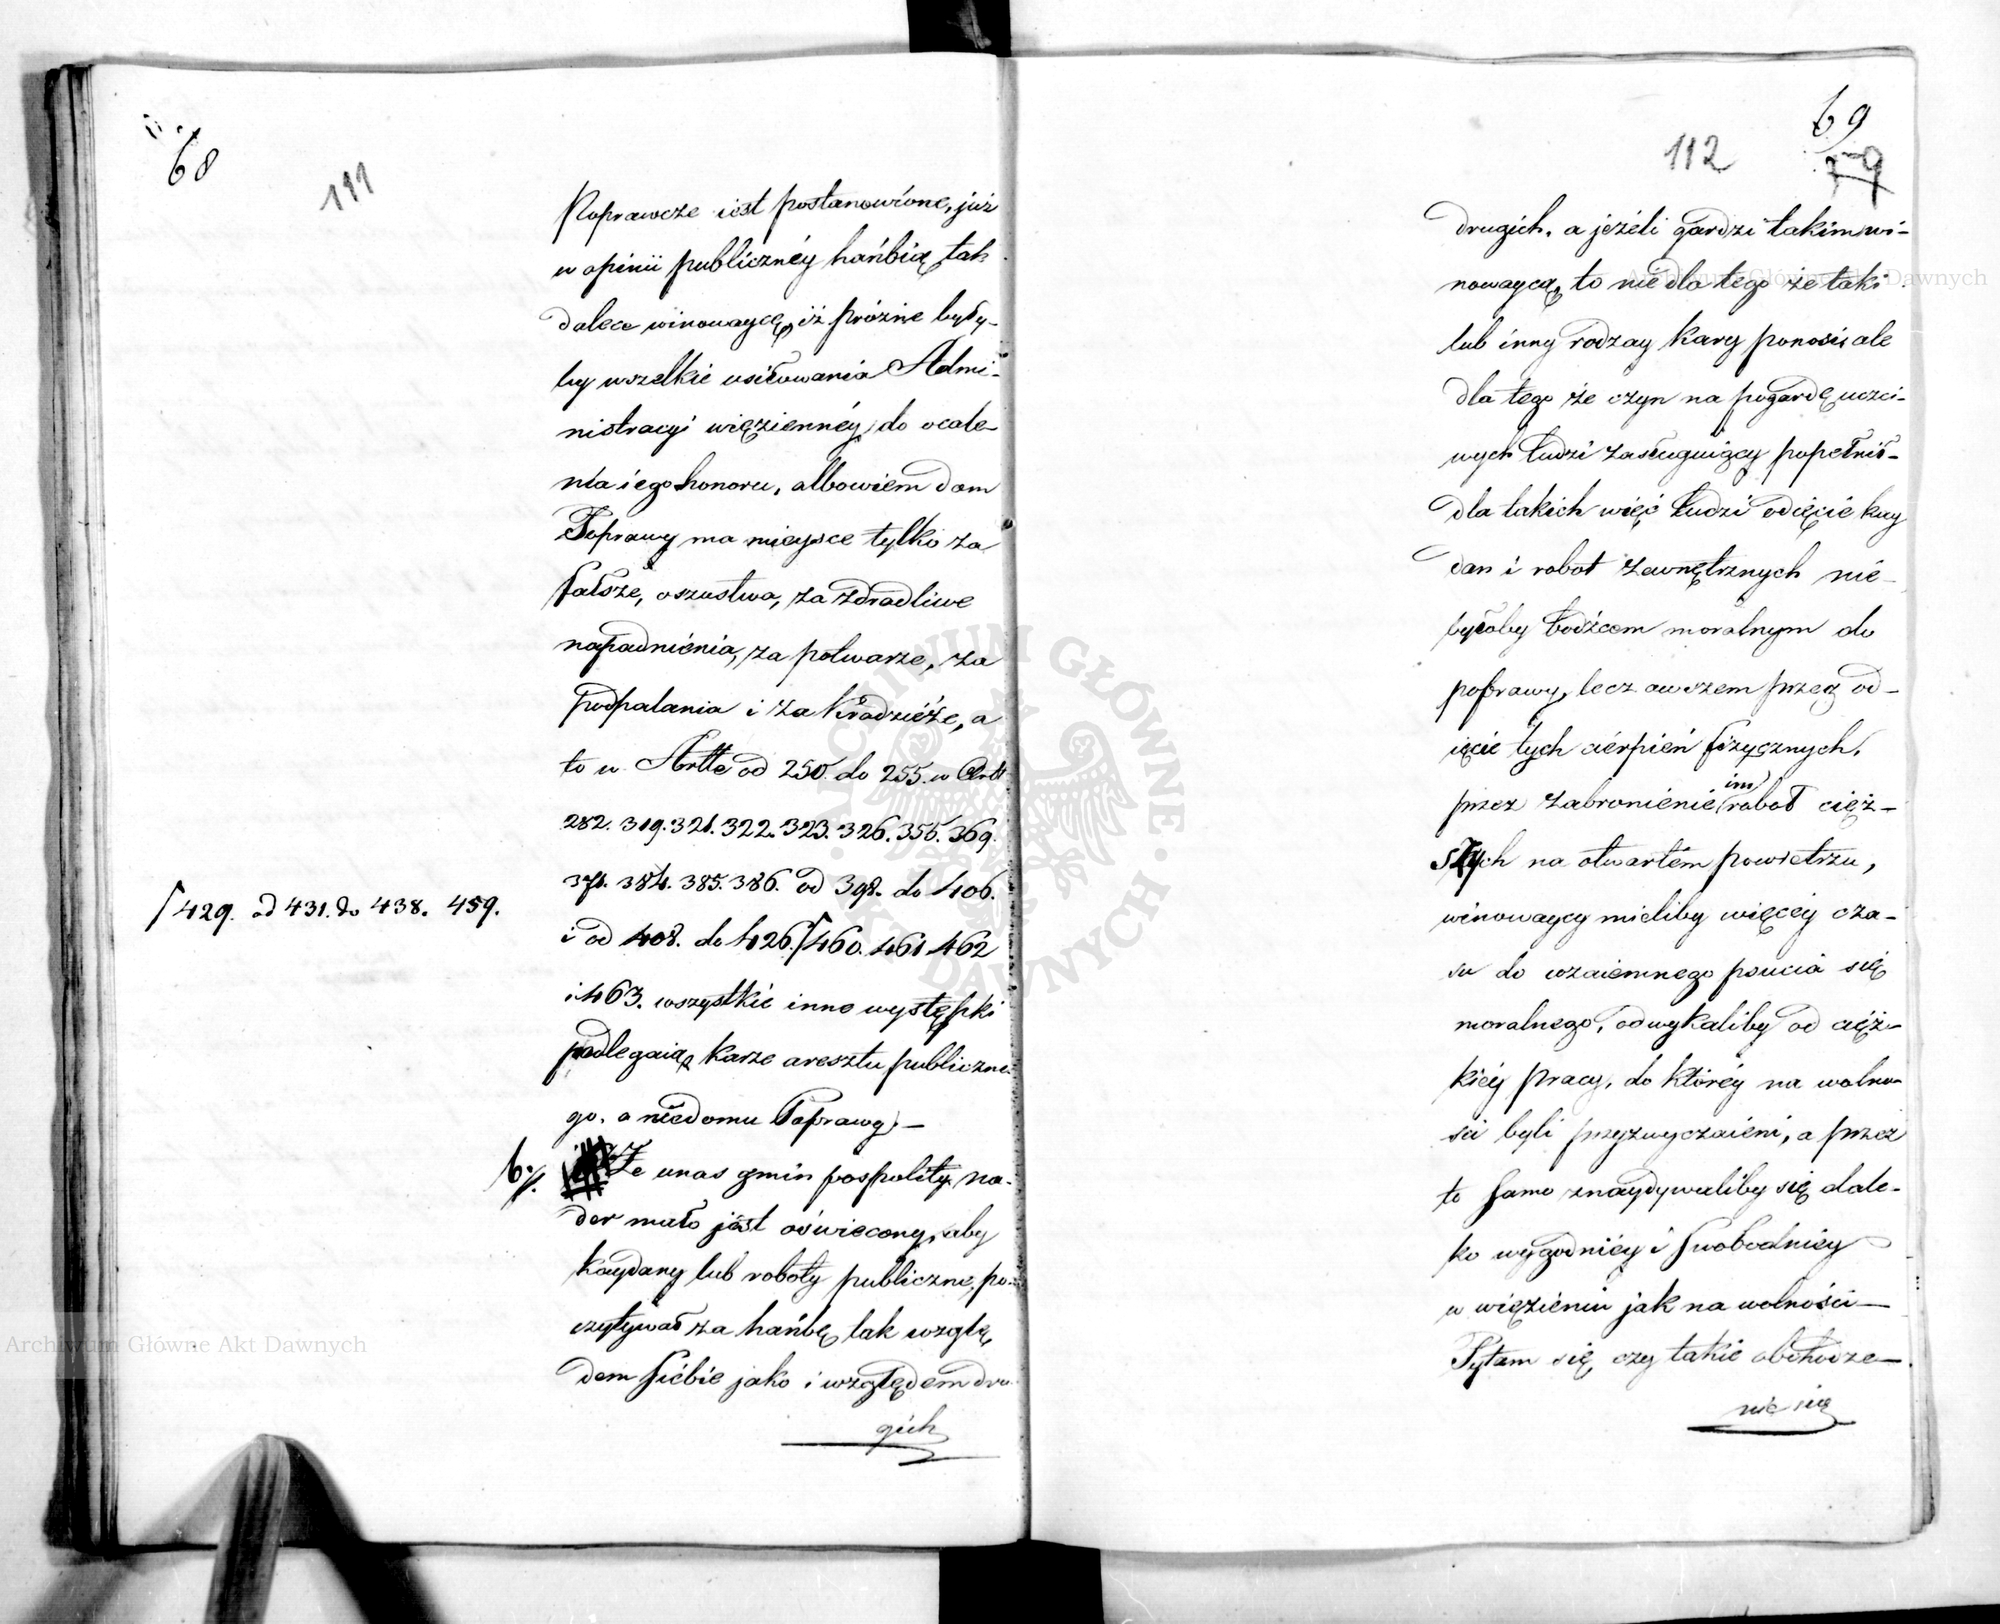 68
111
Poprawcze iest postanowione, już
w opinii publicznéy hańbią tak
dalece winowaycę, iż próżne były-
by wszelkie usiłowania Admi-
nistracyi więzienney do ocale-
nia iego honoru, albowiem dom
Poprawy ma mieysce tylko za
fałsze, oszustwa, za zdradliwe
napadnienia, za potwarze, za
podpalania i za kradzieże, a
to w Artte od 250. do 255. w Artt
282. 319. 321. 322. 323. 326. 355. 369.
371. 384. 385. 386. od 398. do 406.
i od 408. do 426. 460. 461 462
429. od 431. do 438. 459.
i 463. wszystkie inne występki
podlegaią karze aresztu publiczne-
go, a nie domu Poprawy. —
6./. Że u nas gmin pospolity na-
der mało jest oświecony, aby
kaydany lub roboty publiczne, po-
czytywał za hańbę tak wzglę
dem siebie jako i względem dru-
gich
69
79
112
drugich, a jeżeli gardzi takim wi-
nowaycą, to nie dla tego że taki
lub inny rodzay kary ponosi, ale
dla tego że czyn na pogardę uczci-
wych ludzi zasługuiący popełnił-
dla takich więc ludzi odięcie kay
dan i robot zewnętrznych nie-
byłoby bodźcem moralnym do
poprawy, lecz owszem przez od-
ięcie tych cierpień fizycznych,
przez zabronienie im robot cięż-
szych na otwartém powietrzu,
winowaycy mieliby więcey cza-
su do wzaiemnego psucia się
moralnego, odwykaliby od cięż-
kiéy pracy, do któréy na wolno-
ści byli przyzwyczaieni, a przez
to samo znaydywaliby się dale-
ko wygodniéy i swobodniey
w więzieniu jak na wolności —
Pytam się czy takie obchodze-
nie się
Archiwum Główne Akt Dawnych
Archiwum Główne Akt Dawnych
ARCHIWUM GŁÓWNE · AKT DAWNYCH ·